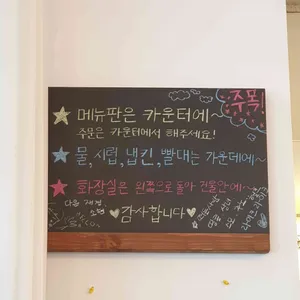 주목!
메뉴판은 카운터에~
주문은 카운터에서 해주세요!
물, 시럽, 냅킨, 빨대는 가운데에~
화장실은 왼쪽으로 돌아 건물안에~
감사합니다